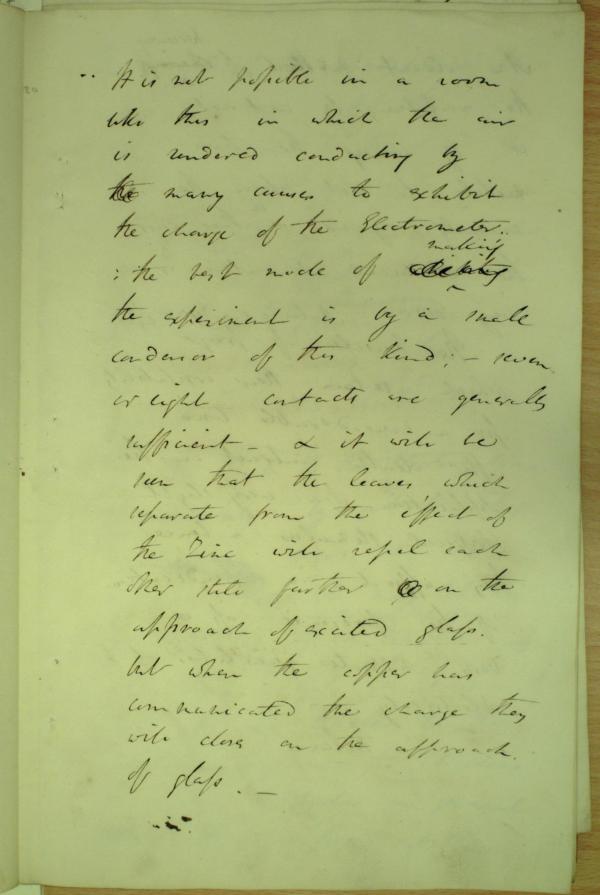 It is not possible in a room
like this in which the air
is rendered conducting by
the many causes to exhibit
the charge of the Electrometer.
making
: the best mode of
the experiment is by a small
condensor of this kind; - seven
or eight contacts are generally
sufficient - & it will be
seen that the leaves which
separate from the effect of
the Zinc will repel each
other still further on the
approach of excited glass.
but when the copper has
communicated the charge they
will close on the approach
of glass. -